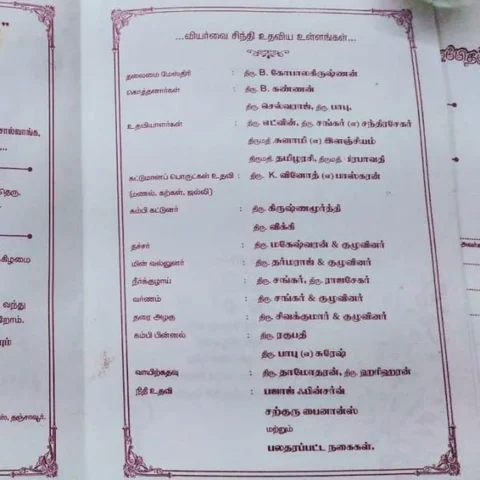 ...வியர்வை சிந்தி உதவிய உள்ளங்கள்...
தலைமை மேஸ்திரி : திரு. B. கோபாலகிருஷ்ணன்
கொத்தனார்கள் : திரு. B. கண்ணன்
திரு. செல்வராஜ், திரு. பாபு,
உதவியாளர்கள் : திரு. எட்வின், திரு. சங்கர் (எ) சந்திரசேகர்
திருமதி. சுனாமி (எ) இளஞ்சியம்
திருமதி. தமிழரசி, திருமதி. பிரபாவதி
கட்டுமானப் பொருட்கள் உதவி : திரு. K. வினோத் (எ) பாஸ்கரன்
(மணல், கற்கள், ஜல்லி)
கம்பி கட்டுனர் : திரு. கிருஷ்ணமூர்த்தி
திரு. விக்கி
தச்சர் : திரு. மகேஷ்வரன் & குழுவினர்
மின் வல்லுனர் : திரு. தர்மராஜ் & குழுவினர்
நீர்க்குழாய் : திரு. சங்கர், திரு. ராஜசேகர்
வர்ணம் : திரு. சங்கர் & குழுவினர்
தரை அழகு : திரு. சிவக்குமார் & குழுவினர்
கம்பி பின்னல் : திரு. ரகுபதி
திரு. பாபு (எ) சுரேஷ்
வாயிற்கதவு : திரு. தாமோதரன், திரு. ஹரிஹரன்
நிதி உதவி : பஜாஜ் ஃபின்சர்வ்
சற்குரு பைனான்ஸ்
மற்றும்
பலதரப்பட்ட நகைகள்.
வந்து
தஞ்சாவூர்.